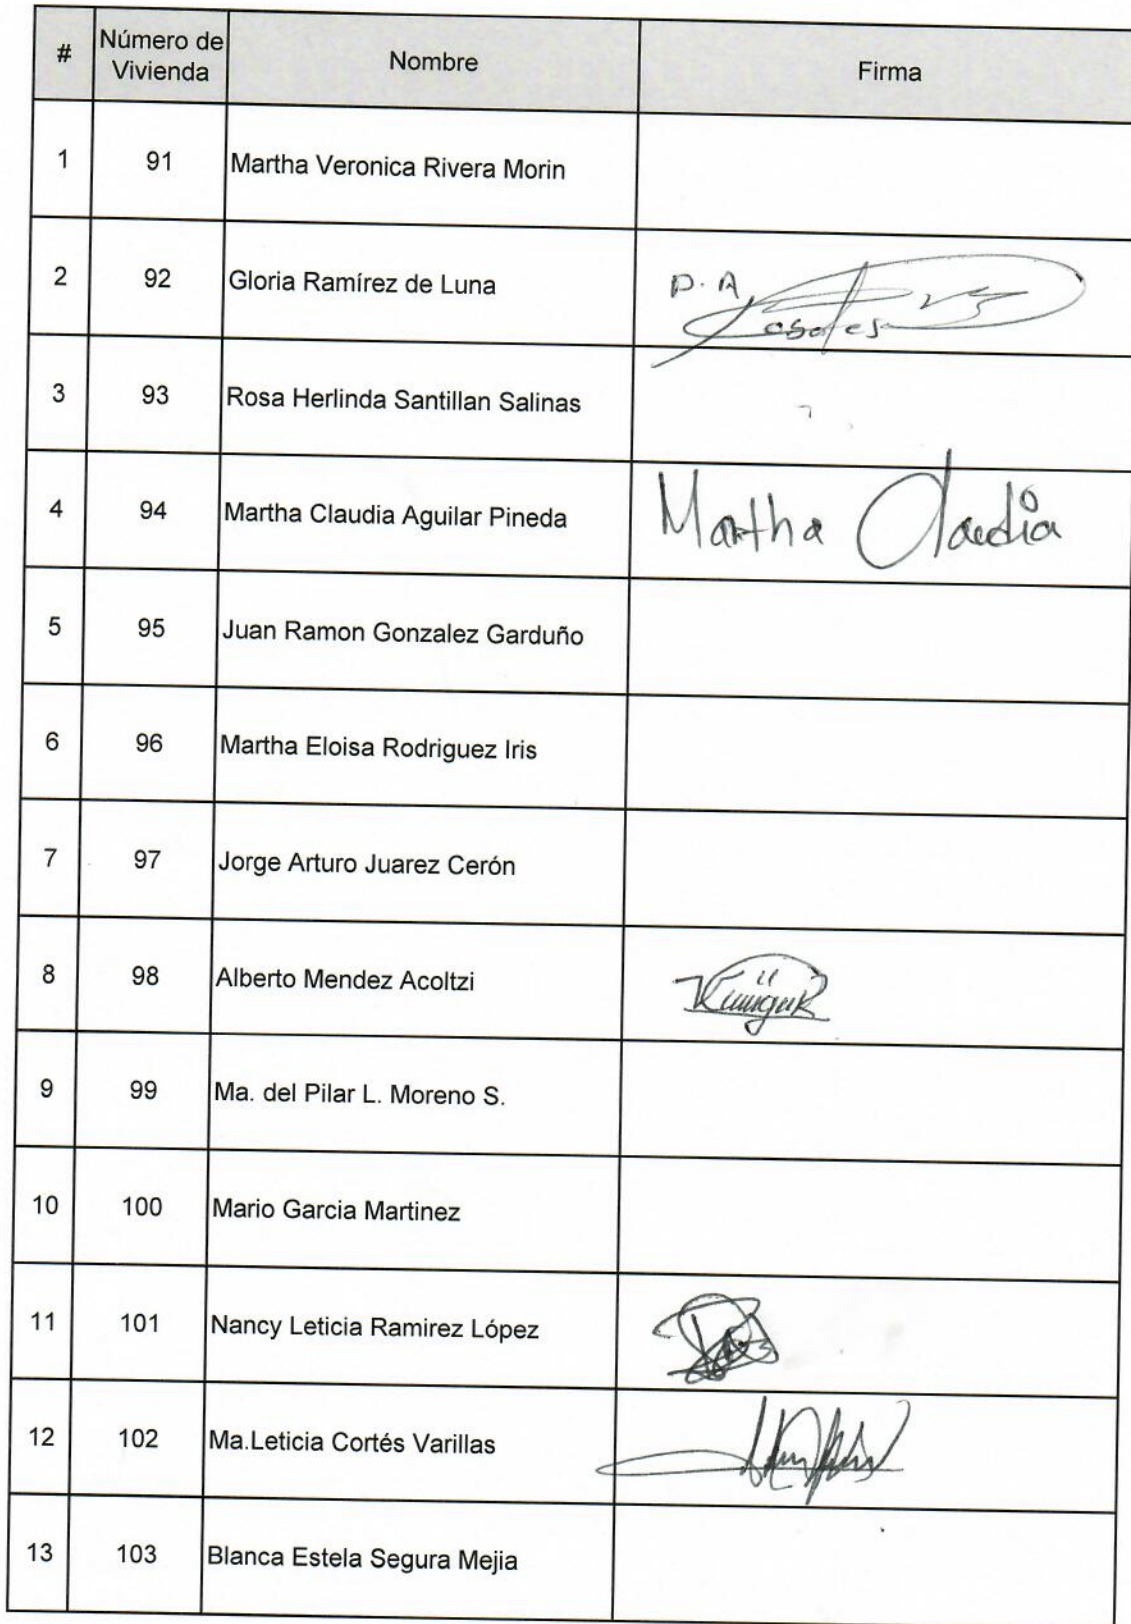 # Número de Vivienda Nombre Firma
1 91 Martha Veronica Rivera Morin
2 92 Gloria Ramírez de Luna P.A
3 93 Rosa Herlinda Santillan Salinas
4 94 Martha Claudia Aguilar Pineda Martha Claudia
5 95 Juan Ramon Gonzalez Garduño
6 96 Martha Eloisa Rodriguez Iris
7 97 Jorge Arturo Juarez Cerón
8 98 Alberto Mendez Acoltzi
9 99 Ma. del Pilar L. Moreno S.
10 100 Mario Garcia Martinez
11 101 Nancy Leticia Ramirez López
12 102 Ma.Leticia Cortés Varillas
13 103 Blanca Estela Segura Mejia